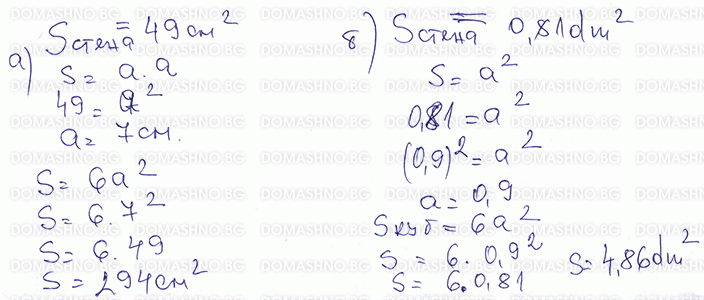 а) Sстена = 49 см²
S = a . a
49 = a²
a = 7 см.
S = 6a²
S = 6 . 7²
S = 6 . 49
S = 294 см²
б) Sстена = 0,81 dm²
S = a²
0,81 = a²
(0,9)² = a²
a = 0,9
Sкуб = 6a²
S = 6 . 0,9²
S = 6 . 0,81
S = 4,86 dm²
DOMASHNO.BG